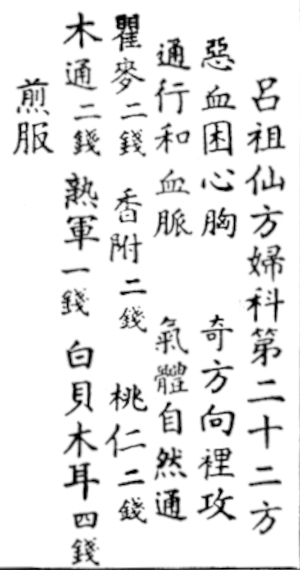 呂祖仙方婦科第二十二方
惡血困心胸　奇方向裡攻
通行和血脈　氣體自然通
瞿麥二錢　香附二錢　桃仁二錢
木通二錢　熟軍一錢　白貝木耳四錢
煎服